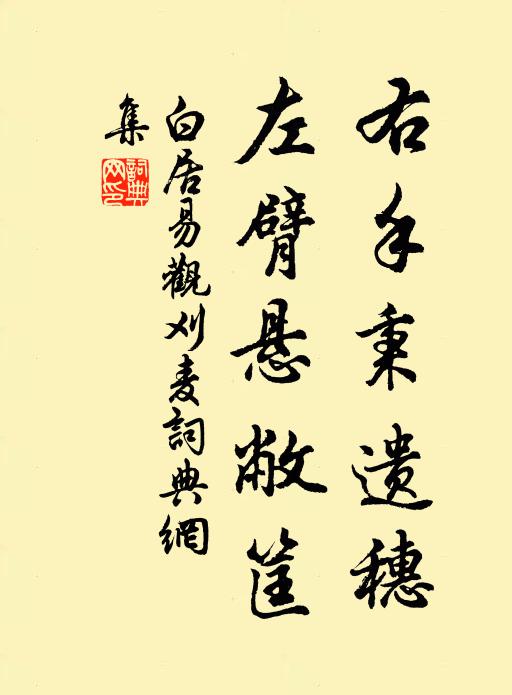 右手秉遗穗
左臂悬敝筐
白居易觀刈麦詞典網
集
詞典
网印